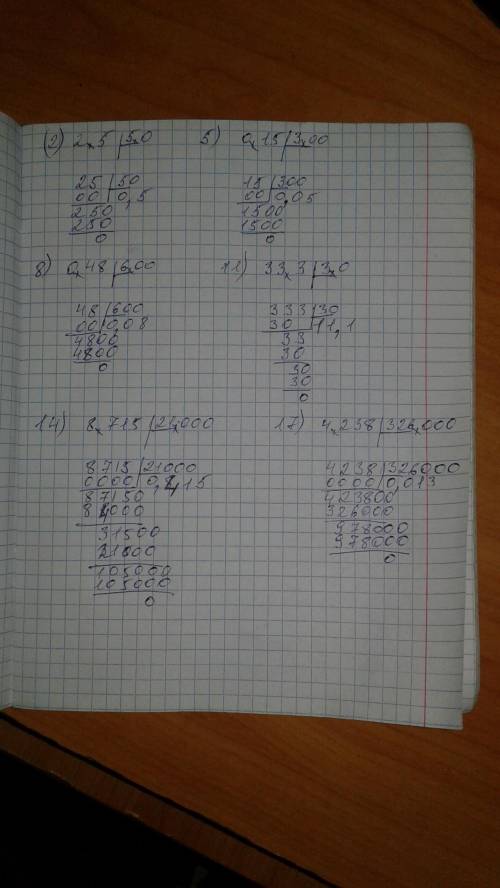 2) 2,5 | 5,0
25 | 50
00 | 0,5
250
250
0
5) 0,15 | 3,00
15 | 300
00 | 0,05
1500
1500
0
8) 0,48 | 6,00
48 | 600
00 | 0,08
4800
4800
0
11) 33,3 | 3,0
333 | 30
30 | 11,1
33
30
30
30
0
14) 8,715 | 21,000
8715 | 21000
0000 | 0,415
87150
84000
31500
21000
105000
105000
0
17) 4,238 | 326,000
4238 | 326000
0000 | 0,013
423800
326000
978000
978000
0